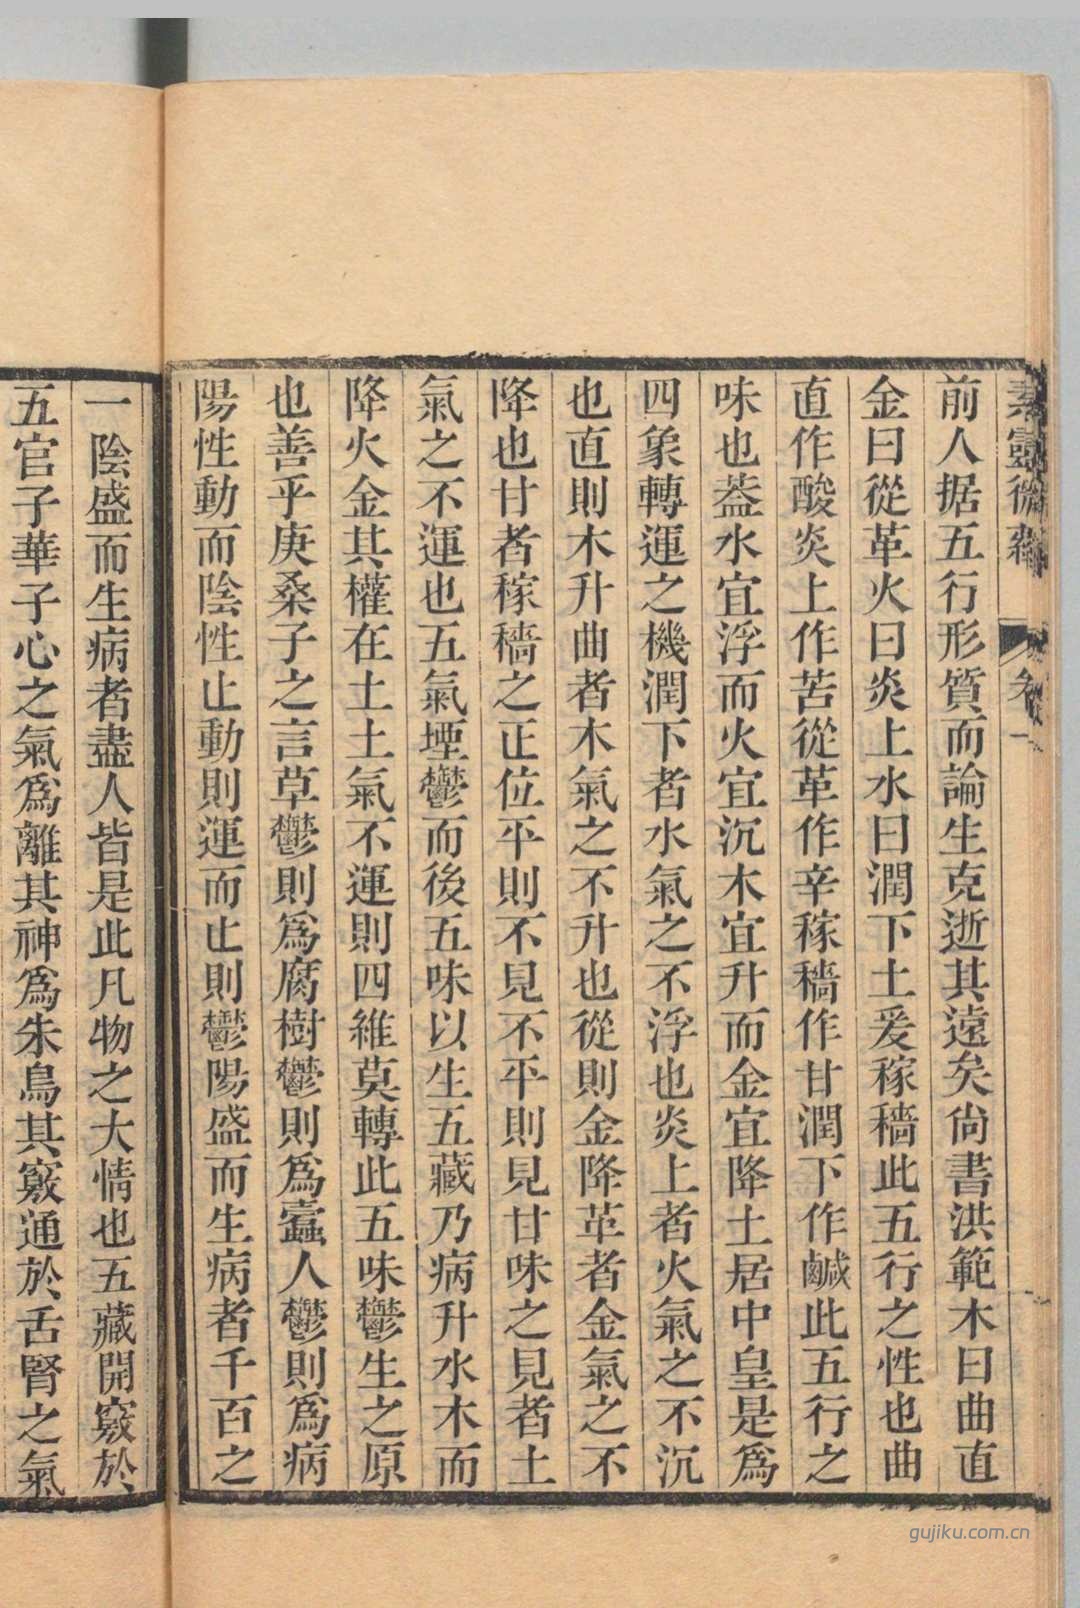 素靈微蘊 卷一
前人据五行形質而論生克逝其遠矣尙書洪範木曰曲直
金曰從革火曰炎上水曰潤下土爰稼穡此五行之性也曲
直作酸炎上作苦從革作辛稼穡作甘潤下作鹹此五行之
味也蓋水宜浮而火宜沉木宜升而金宜降土居中皇是爲
四象轉運之機潤下者水氣之不浮也炎上者火氣之不沉
也直則木升曲者木氣之不升也從則金降革者金氣之不
降也甘者稼穡之正位平則不見不平則見甘味之見者土
氣之不運也五氣堙鬱而後五味以生五藏乃病升水木而
降火金其權在土土氣不運則四維莫轉此五味鬱生之原
也善乎庚桑子之言草鬱則爲腐樹鬱則爲蠹人鬱則爲病
陽性動而陰性止動則運而止則鬱陽盛而生病者千百之
一陰盛而生病者盡人皆是此凡物之大情也五藏開竅於
五官子華子心之氣爲離其神爲朱鳥其竅通於舌腎之氣
gujiku.com.cn